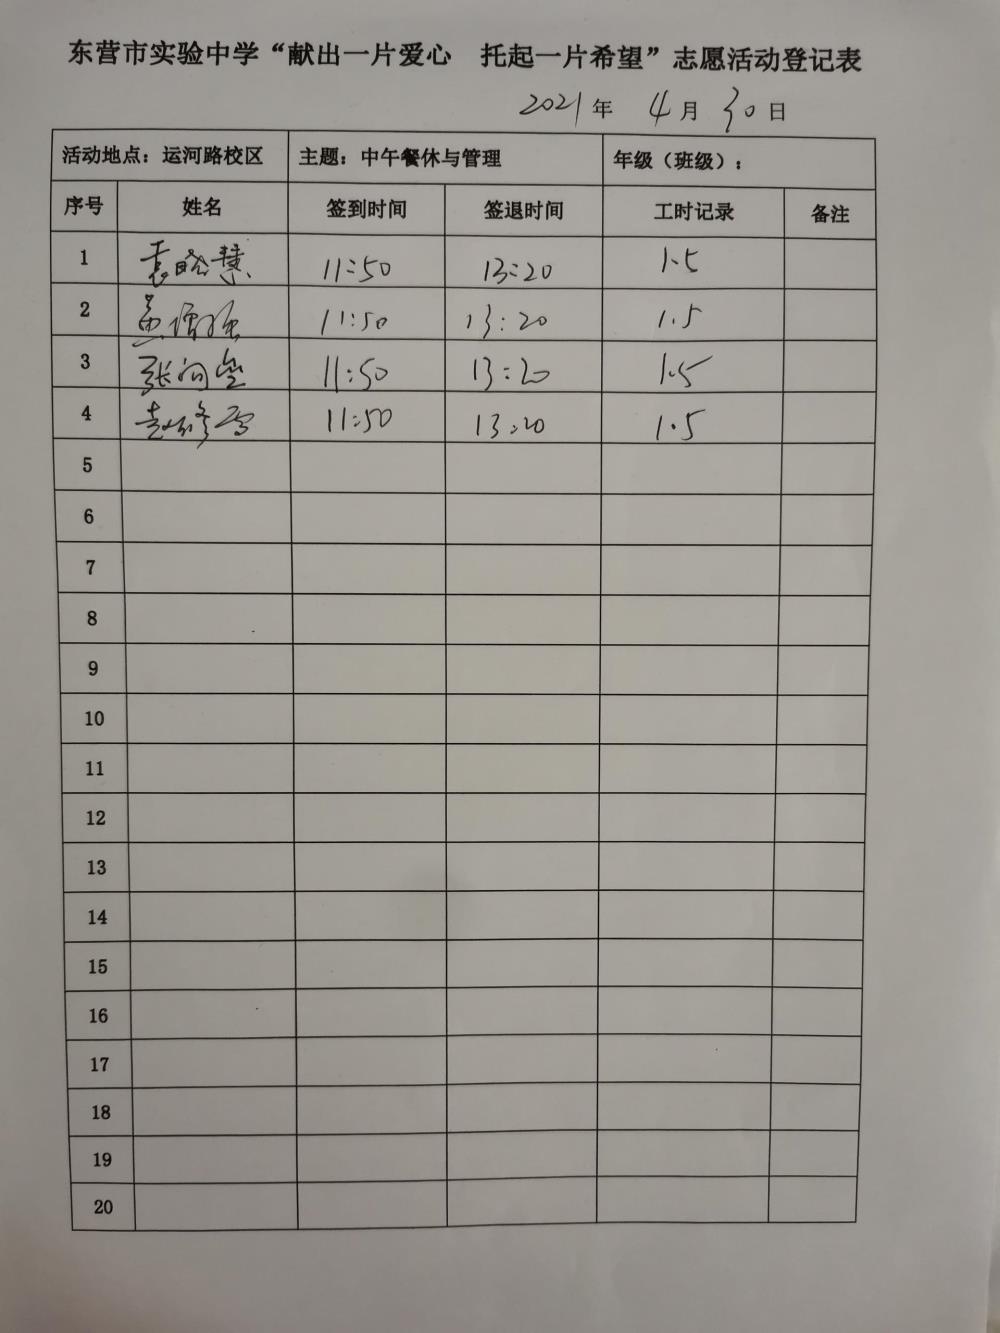 东营市实验中学“献出一片爱心 托起一片希望”志愿活动登记表
2021年 4月 30日
活动地点：运河路校区 主题：中午餐休与管理 年级（班级）：
序号 姓名 签到时间 签退时间 工时记录 备注
1 袁晓慧 11:50 13:20 1.5
2 11:50 13:20 1.5
3 张 11:50 13:20 1.5
4 11:50 13:20 1.5
5
6
7
8
9
10
11
12
13
14
15
16
17
18
19
20